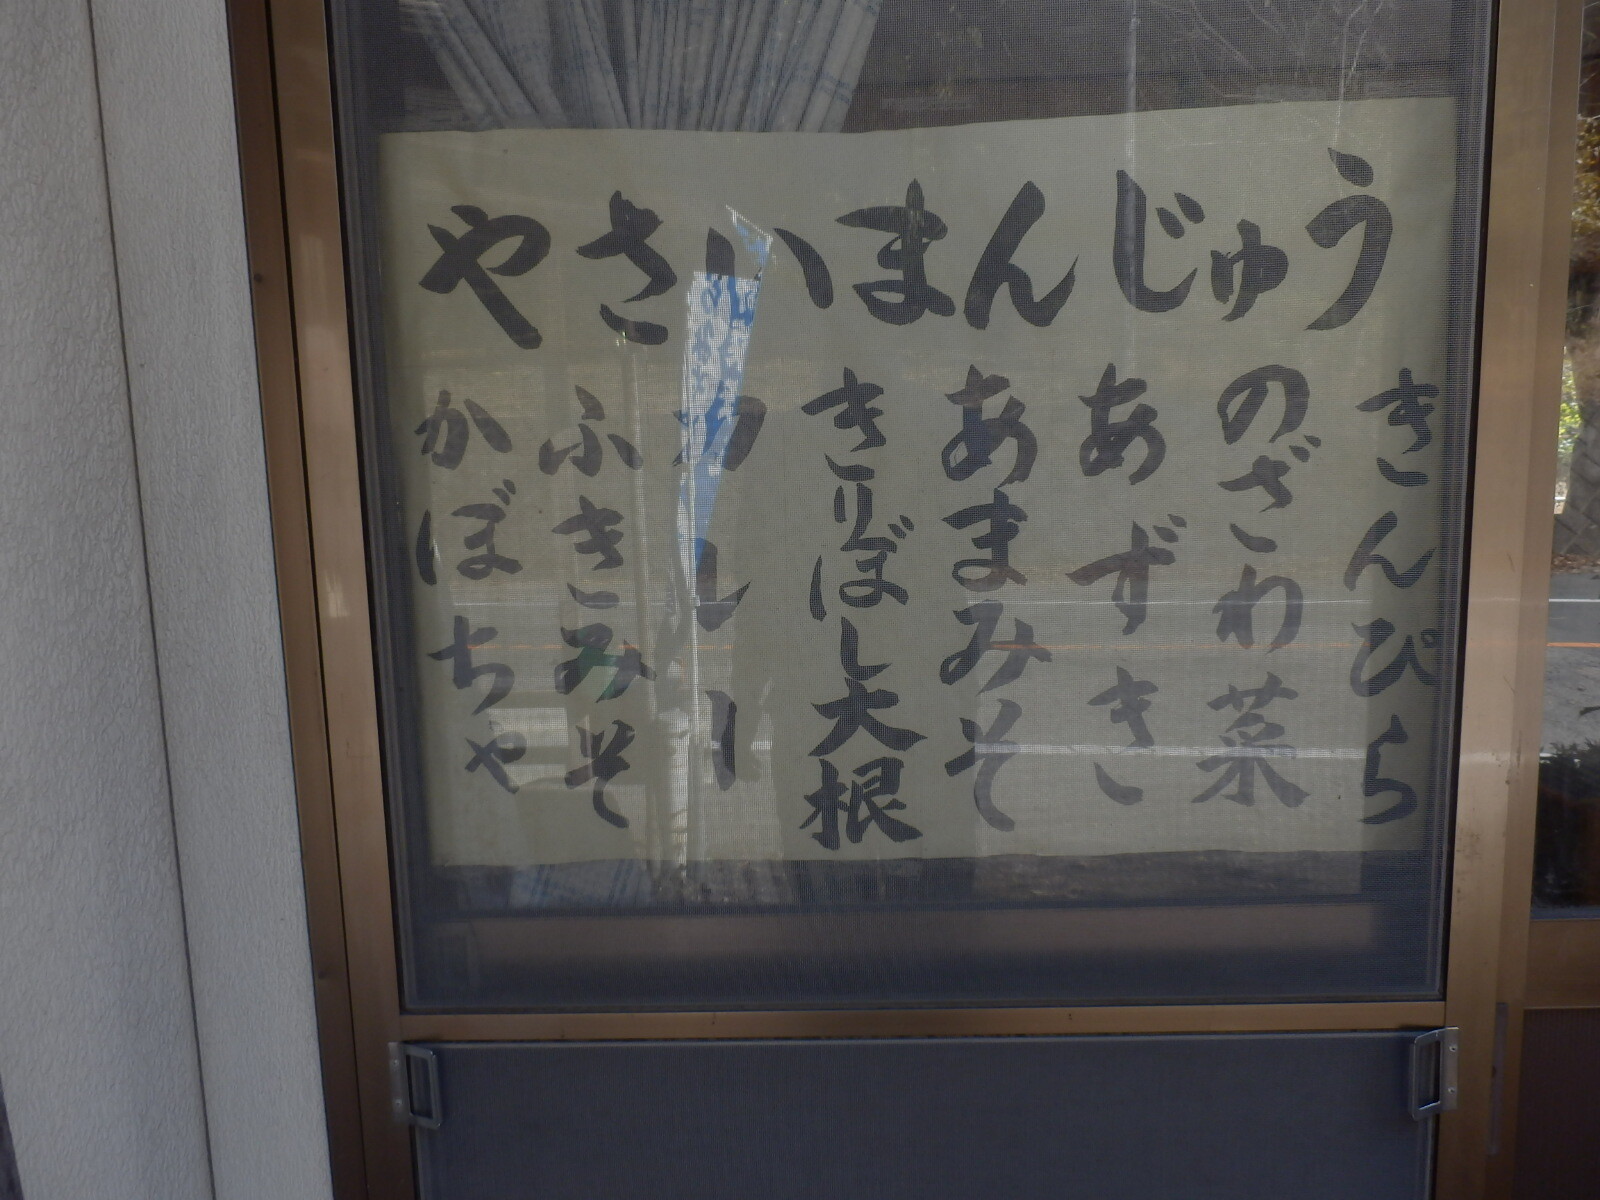 やさいまんじゅう
きんぴら
のざわ菜
あずき
あまみそ
きりぼし大根
カレー
ふきみそ
かぼちゃ